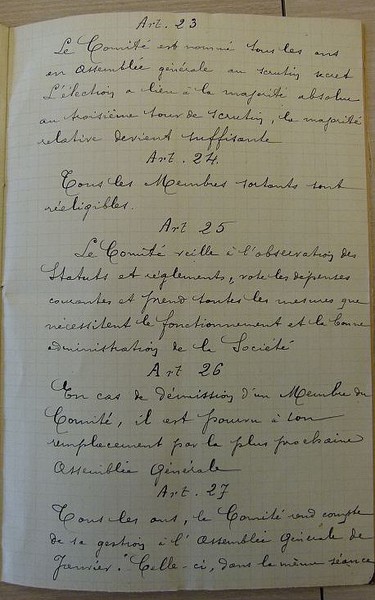 Art. 23
Le Comité est nommé tous les ans
en Assemblée générale au scrutin secret
L'élection a lieu à la majorité absolue
au troisième tour de scrutin, la majorité
relative devient suffisante
Art. 24.
Tous les Membres sortants sont
rééligibles.
Art 25
Le Comité veille à l'observation des
Statuts et règlements, vote les dépenses
courantes et prend toutes les mesures que
nécessitent le fonctionnement et la bonne
administration de la Société
Art 26
En cas de démission d'un Membre du
Comité, il est pourvu à son
remplacement par la plus prochaine
Assemblée Générale
Art. 27
Tous les ans, le Comité rend compte
de sa gestion à l'Assemblée Générale de
Janvier. Celle-ci, dans la même séance